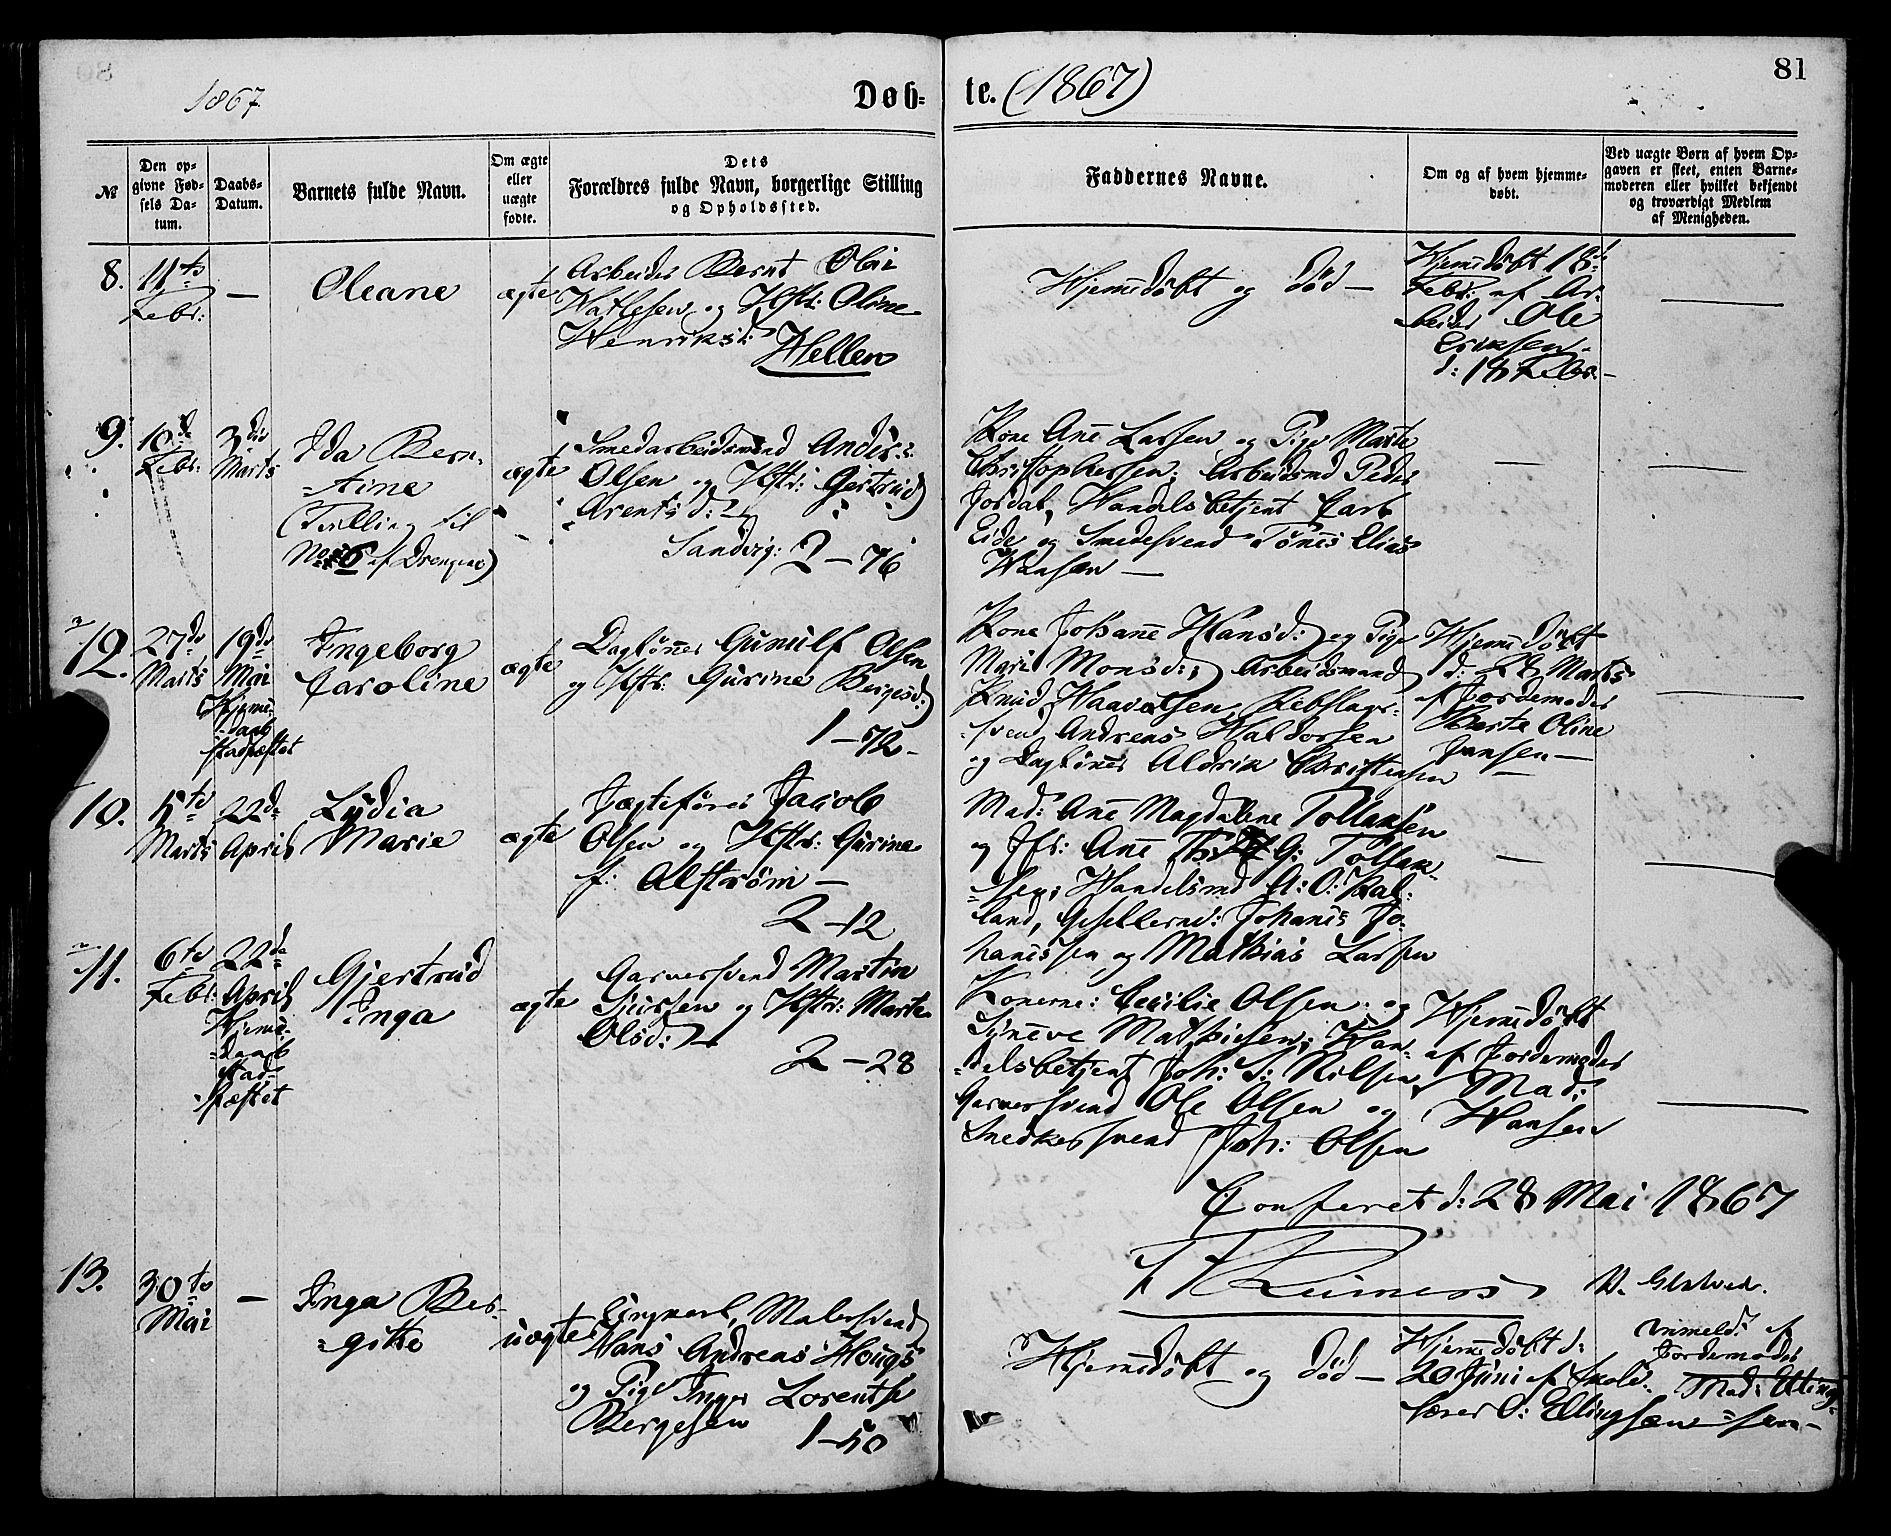 1867.
Døb-
te. (1867)
81
№
Den op-
givne Fød-
sels Da-
tum.
Daabs-
Datum.
Barnets fulde Navn.
Om ægte
eller
uægte
fødte.
Dets
Forældres fulde Navn, borgerlige Stilling
og Opholdssted.
Faddernes Navne.
Om og af hvem hjemme-
døbt.
Ved uægte Børn af hvem Op-
gaven er skeet, enten Barne-
moderen eller hvilket bekjendt
og troværdigt Medlem
af Menigheden.
8.
11te
Febr:
—
Oleane
ægte
Arbeider Bernt Olai
og Hstr: Oline
Henriksd:
Hellen
Hjemdøbt og død —
Hjemdøbt 18de
Febr: af Ar-
beider Ole
Eriksen
9.
10de
Febr:
3die
Marts
Ida Bern-
tine
(Tvilling til
No 6 af Drengene)
ægte
Smedarbeidsmand Anders
Olsen og Hstr: Gjertrud
Arentsd:
Sandvig: 2 – 76
Kone Ane Larsen og Pige Marte
Christophersen; Arbeidsmd Peder
Jordal, Handelsbetjent Carl
Eide og Smedesvend Tönes Elias
Hansen —
12.
27de
Marts
19de
Mai
Hjeme-
daab
stadfæstet
Ingeborg
Caroline
ægte
Daglønner Gunulf Olsen
og Hstr: Gurine Bergesd:
1 – 72 –
Kone Johanne Hansd: og Pige
Mari Monsd:; Arbeidsmand
Knud Haavalsen, Rebslager-
svend Andreas Haldorsen
og Daglønner Aldrik Christensen
Hjemdøbt
d: 28 Marts
af Jordemoder
Berte Oline
Jansen —
10.
5te
Marts
22de
April
Lydia
Marie
ægte
Jægtefører Jacob
Olsen og Hstr: Gurine
f: Alstrøm —
2 – 12
Mad: Ane Magdalene Tollaksen
og Jfr: Ane G: Tollak-
sen; Handelsmd A: O: Kal-
land, Gesellerne: Johanes Jo-
hanessen og Mathias Larsen
11.
6te
Febr:
22de
April
Hjeme-
daab
stad-
fæstet
Gjertrud
Inga
ægte
Garversvend Martin
Sjursen og Hstr: Marte
Olsd:
2 – 28
Konerne: Cecilie Olsen og
Syneve Mathiesen; Han-
delsbetjent Joh: S: Nilsen,
Garversvend Ole Olsen og
Snedkersvend Joh: Olsen
Hjemdøbt
af Jordemoder
Mad:
Hansen
Conferet d: 28 Mai 1867
13.
30te
Mai
—
Inga Ber-
gitte
uægte
Ungkarl, Malersvend
Hans Andreas Hougs
og Pige Inger Lorentse
Bergesen
1 – 50
Hjemdøbt og død —
Hjemdøbt d:
20 Juni af Skole-
lærer O: Ellingsen
Anmeldt af
Jordemoder
Mad: